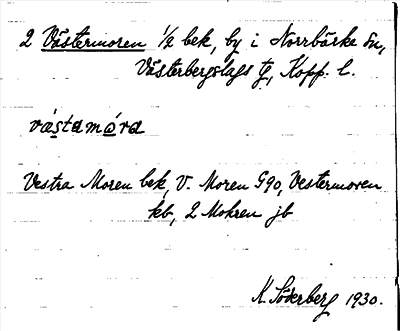 2 Västermoren 1/2 bek, by i Norrbärke sn,
Västerbergslags tg, Kopp. l.
västamóra
Vestra Moren bek, V. Moren G90, Vestermoren
kb, 2 Mohren jb
K. Söderberg 1930.